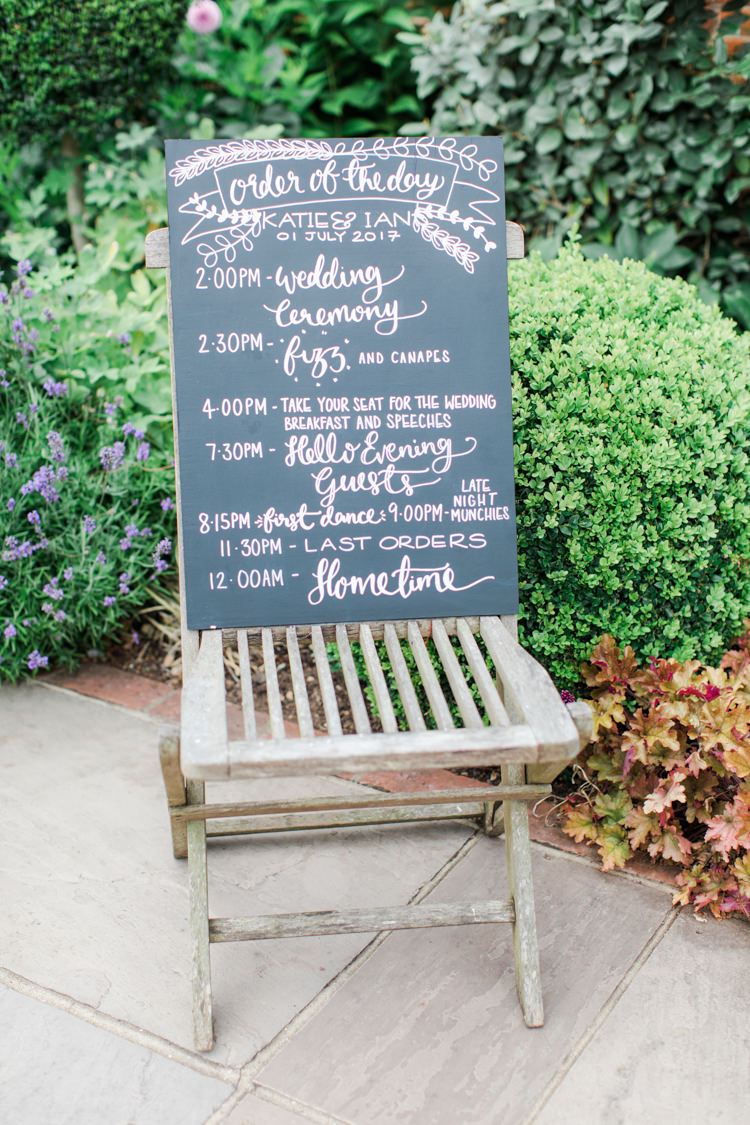 order of the day
KATIE & IAN
01 JULY 2017
2:00PM - Wedding
Ceremony
2.30PM - fizz AND CANAPES
4.00PM - TAKE YOUR SEAT FOR THE WEDDING
BREAKFAST AND SPEECHES
7.30PM - Hello Evening
Guests
8.15PM first dance 9.00PM - LATE
NIGHT
MUNCHIES
11.30PM - LAST ORDERS
12.00AM - Hometime